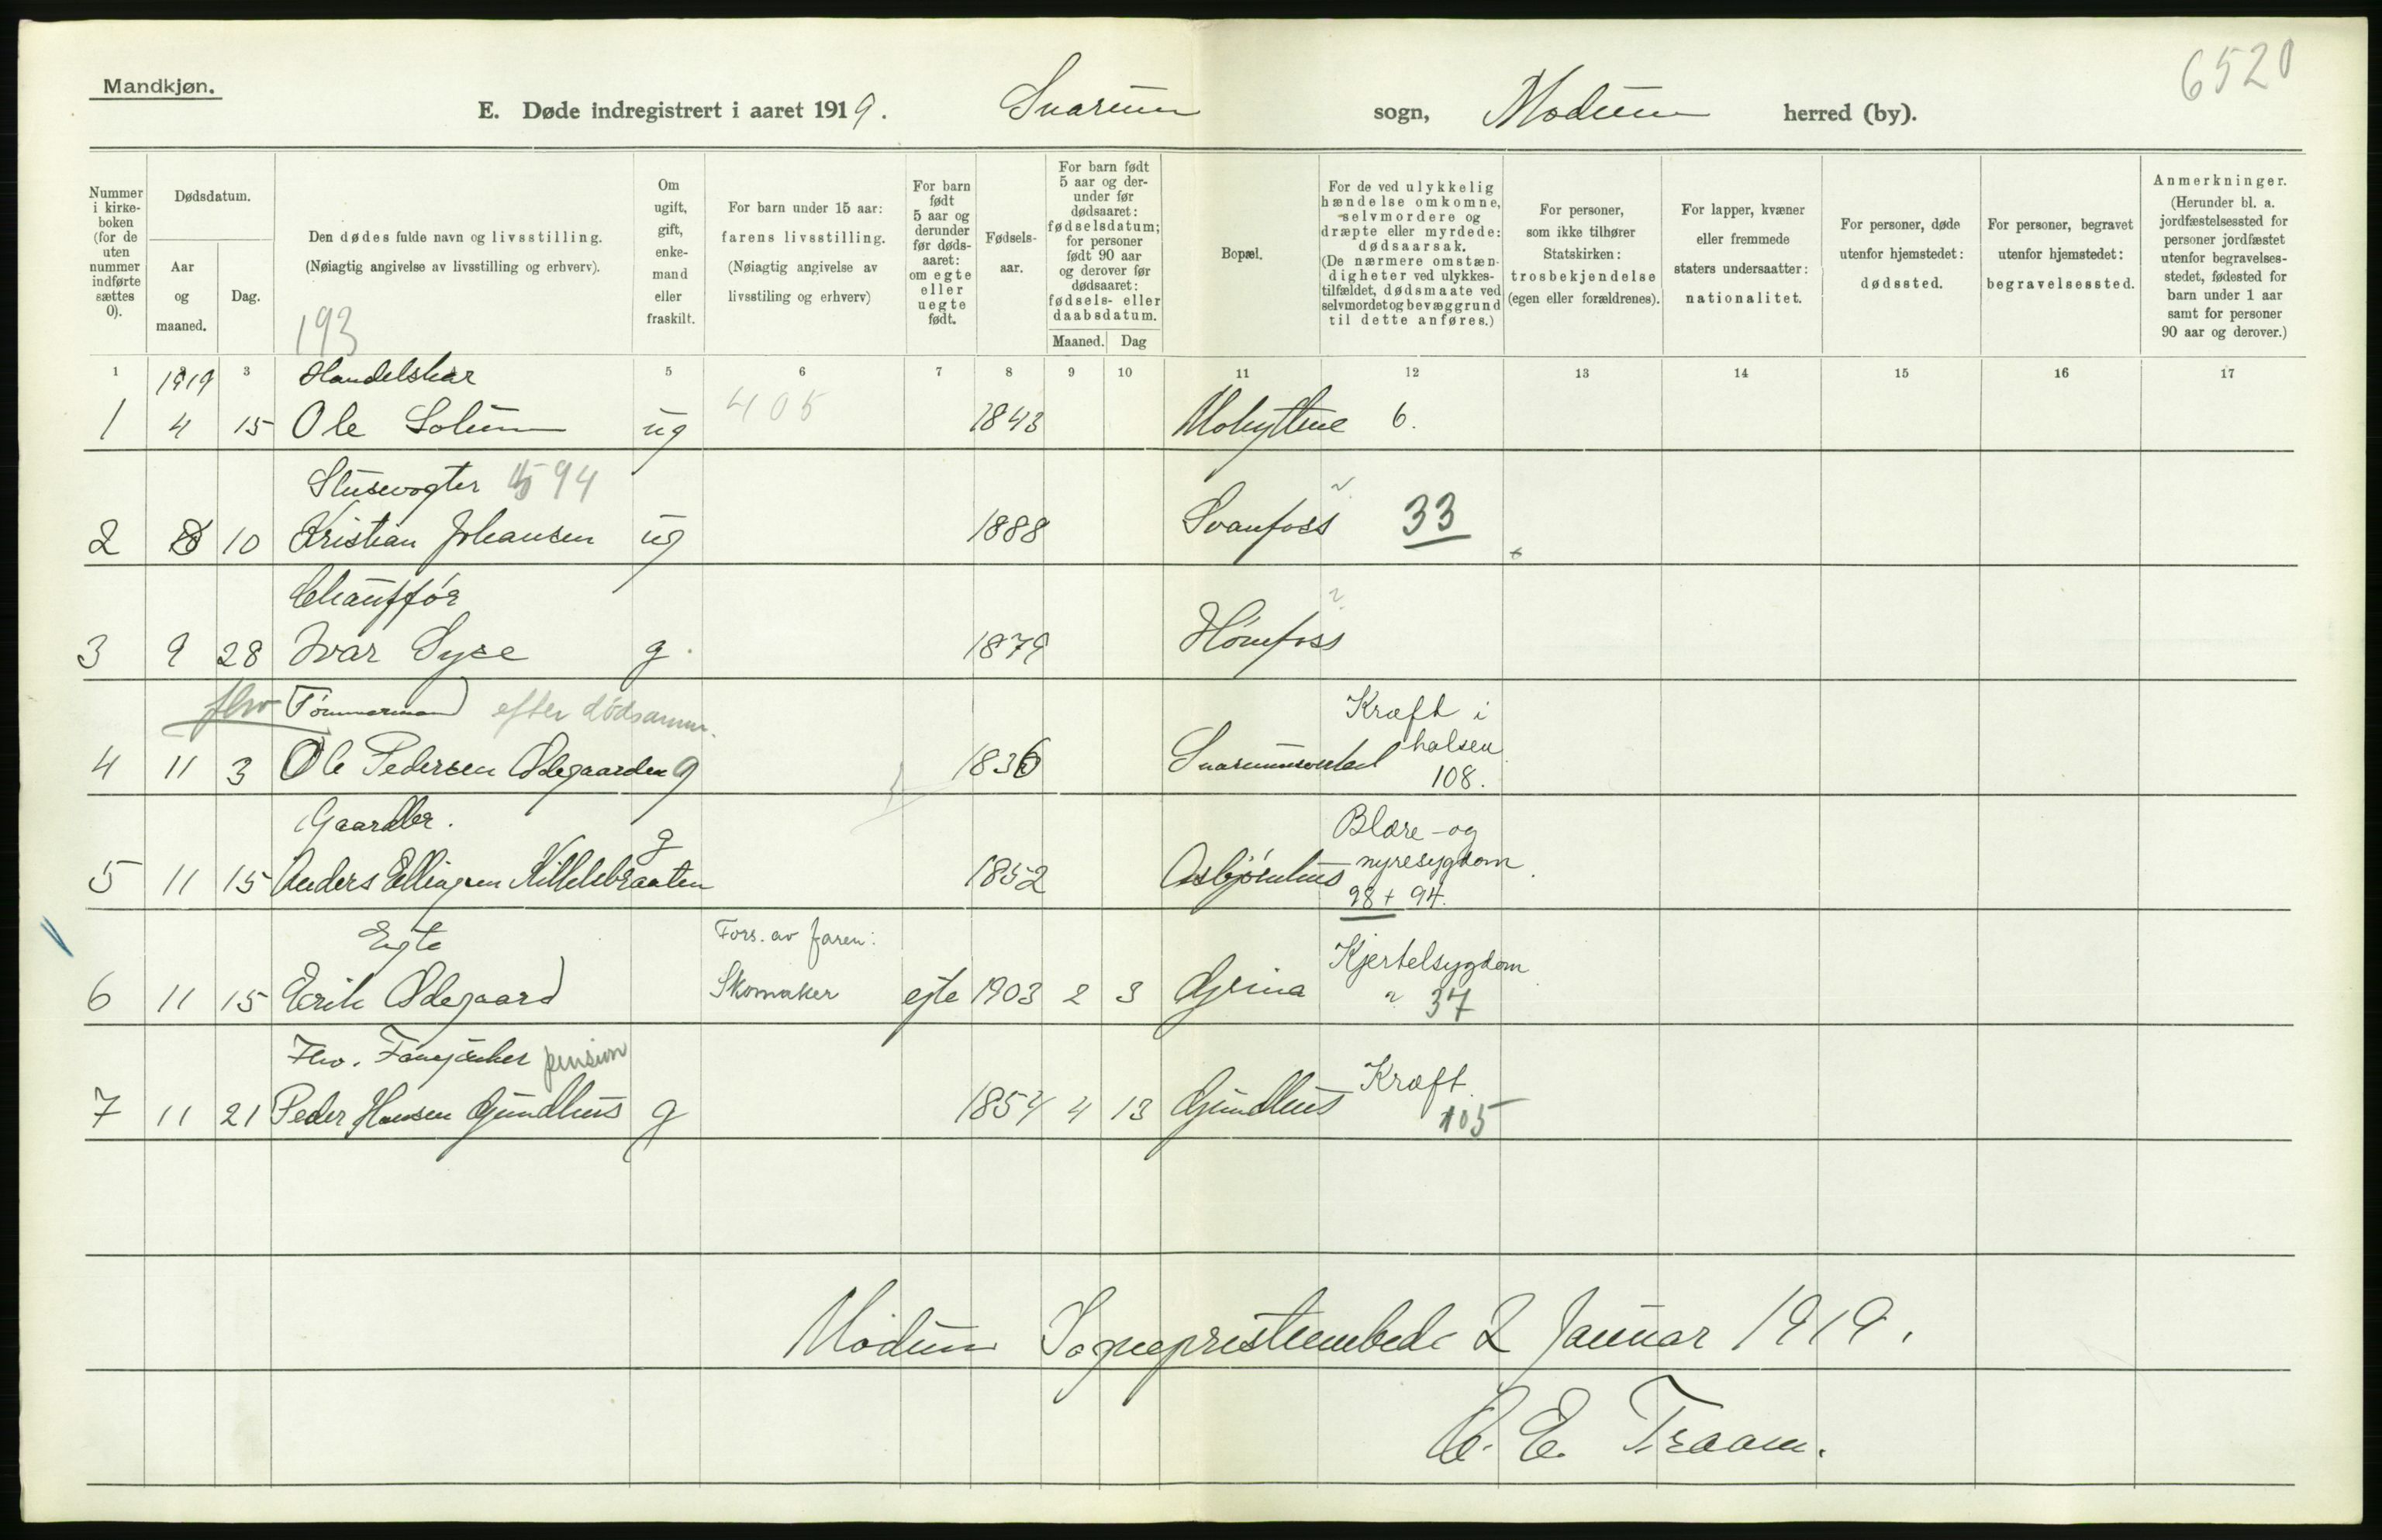 Mandkjøn.
6520
E. Døde indregistrert i aaret 1919. Snarum sogn, Modum herred (by).
Nummer i kirkeboken (for de uten nummer indførte sættes 0).
Dødsdatum.
Aar og maaned.
Dag.
Den dødes fulde navn og livsstilling.
(Nøiagtig angivelse av livsstilling og erhverv).
193
Om ugift, gift, enkemand eller fraskilt.
For barn under 15 aar:
farens livsstilling.
(Nøiagtig angivelse av livsstiling og erhverv)
For barn født 5 aar og derunder før dødsaaret: om egte eller uegte født.
Fødselsaar.
For barn født 5 aar og derunder før dødsaaret: fødselsdatum; for personer født 90 aar og derover før dødsaaret: fødsels- eller daabsdatum.
Maaned. Dag
Bopæl.
For de ved ulykkelig hændelse omkomne, selvmordere og dræpte eller myrdede: dødsaarsak.
(De nærmere omstændigheter ved ulykkestilfældet, dødsmaate ved selvmordet og bevæggrund til dette anføres.)
For personer, som ikke tilhører Statskirken: trosbekjendelse (egen eller forældrenes).
For lapper, kvæner eller fremmede staters undersaatter: nationalitet.
For personer, døde utenfor hjemstedet: dødssted.
For personer, begravet utenfor hjemstedet: begravelsessted.
Anmerkninger.
(Herunder bl. a. jordfæstelsessted for personer jordfæstet utenfor begravelsesstedet, fødested for barn under 1 aar samt for personer 90 aar og derover.)
1 1919 3 5 6 7 8 9 10 11 12 13 14 15 16 17
Handelskar
405
1 4 15 Ole Solum ug 1843 Mohyttene 6.
Slusevogter 594
2 8 10 Kristian Johansen ug 1888 Svanfoss 33
Chauffør
3 9 28 Ivar Syse g. 1879 Hønefoss
fhv Tømmermand efter dødsanm.
Kræft i
4 11 3 Ole Pedersen Ødegaarden g 1836 Snarumsverket halsen
108.
Gaardbr.
Blære-og
5 11 15 Anders Ellingsen Killelebraaten g 1852 Asbjørnhus nyresygdom.
98 + 94.
Egte
Fors. av faren:
Kjertelsygdom
6 11 15 Erik Ødegaard Skomaker egte 1903 2 3 Grina
37
Fhv. Fanejunker pension
Kræft
7 11 21 Peder Hansen Gundhus g 1854 4 13 Gundhus
105
Modum Sogneprestembede 2 Januar 1919.
C. E. Traaen.